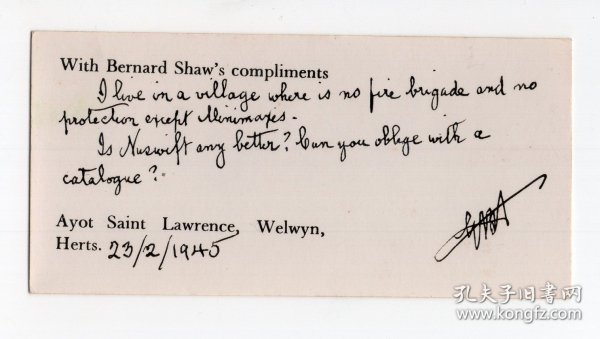 With Bernard Shaw's compliments
I live in a village where is no fire brigade and no
protection except Minimaxes.
Is Nuswift any better? Can you oblige with a
catalogue?
Ayot Saint Lawrence, Welwyn,
Herts. 23/2/1945
GBS
孔夫子旧书网
www.kongfz.com